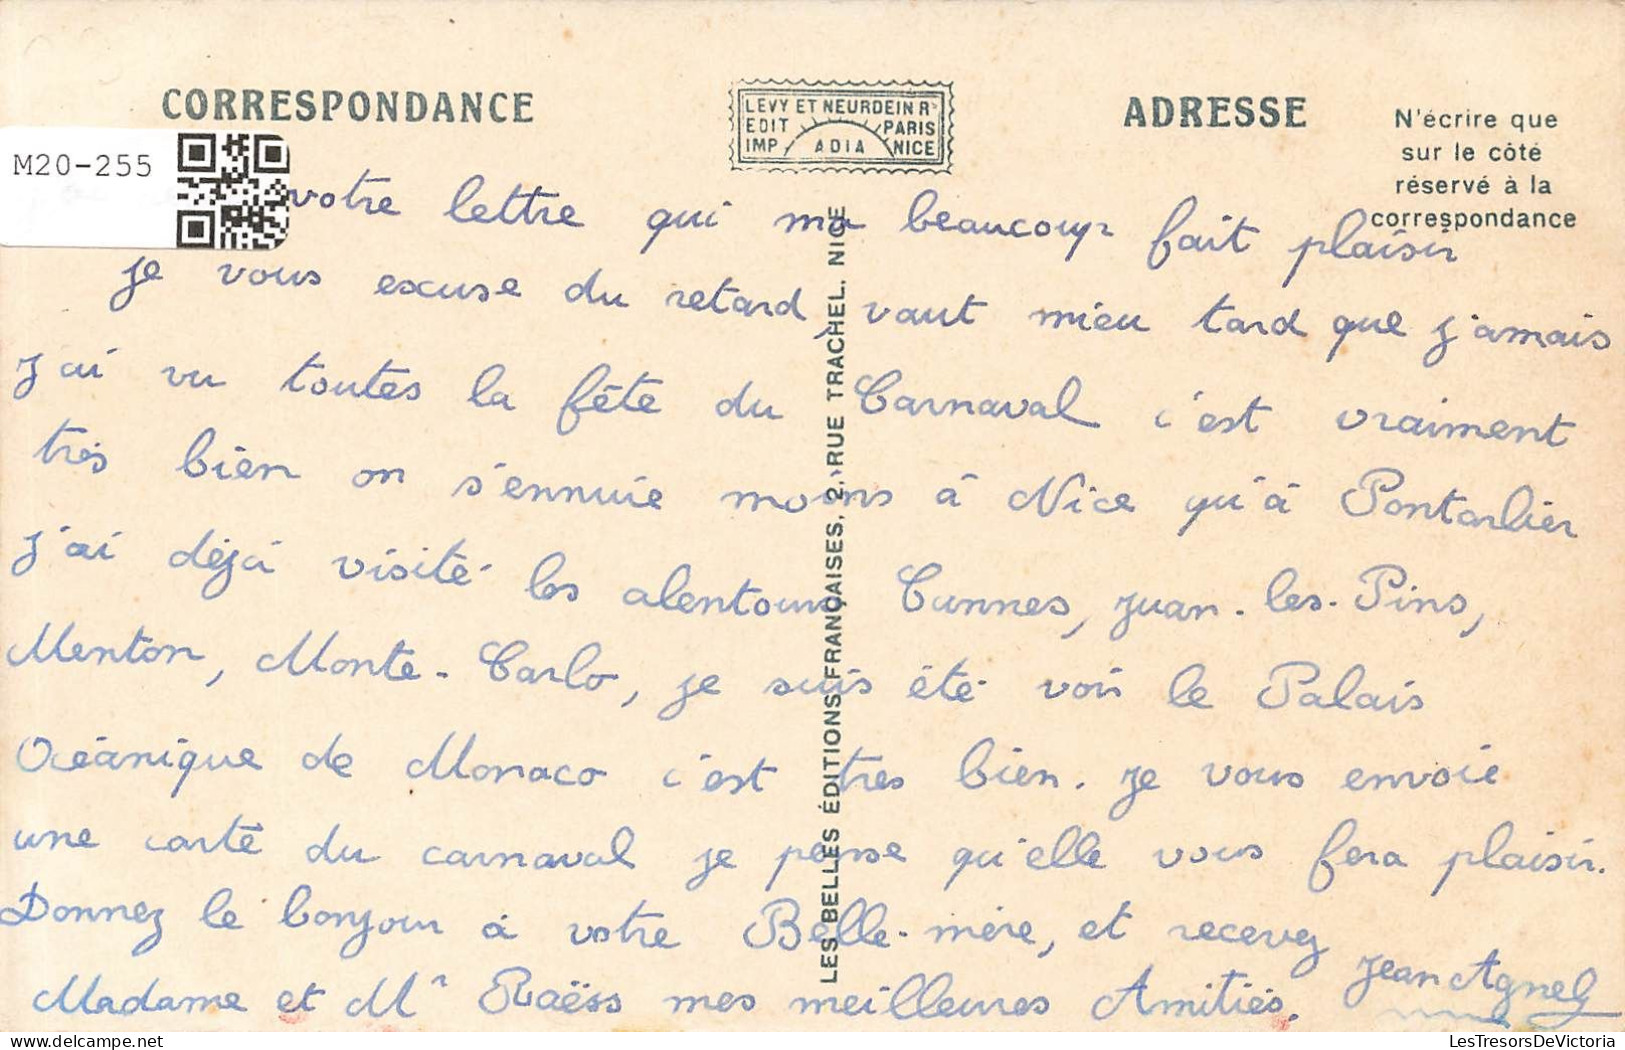 CORRESPONDANCE
LEVY ET NEURDEIN Rs
EDIT PARIS
IMP ADIA NICE
ADRESSE
N'écrire que
sur le côté
réservé à la
correspondance
M20-255
votre lettre qui ma beaucoup fait plaisir
je vous excuse du retard, vaut mieu tard que j'amais
J'ai vu toutes la fête du Carnaval c'est vraiment
très bien on s'ennuie moins à Nice qu'à Pontarlier
J'ai déjà visité les alentours Cannes, Juan-les-Pins,
Menton, Monte-Carlo, je suis été voir le Palais
Océanique de Monaco c'est très bien. Je vous envoie
une carte du carnaval je pense qu'elle vous fera plaisir.
Donnez le bonjour à votre Belle-mère, et recevez
Madame et Mr Raëss mes meilleures Amitiés.
Jean Agnel
LES BELLES ÉDITIONS FRANÇAISES, 2, RUE TRACHEL, NICE
LesTresorsDeVictoria
www.delcampe.net